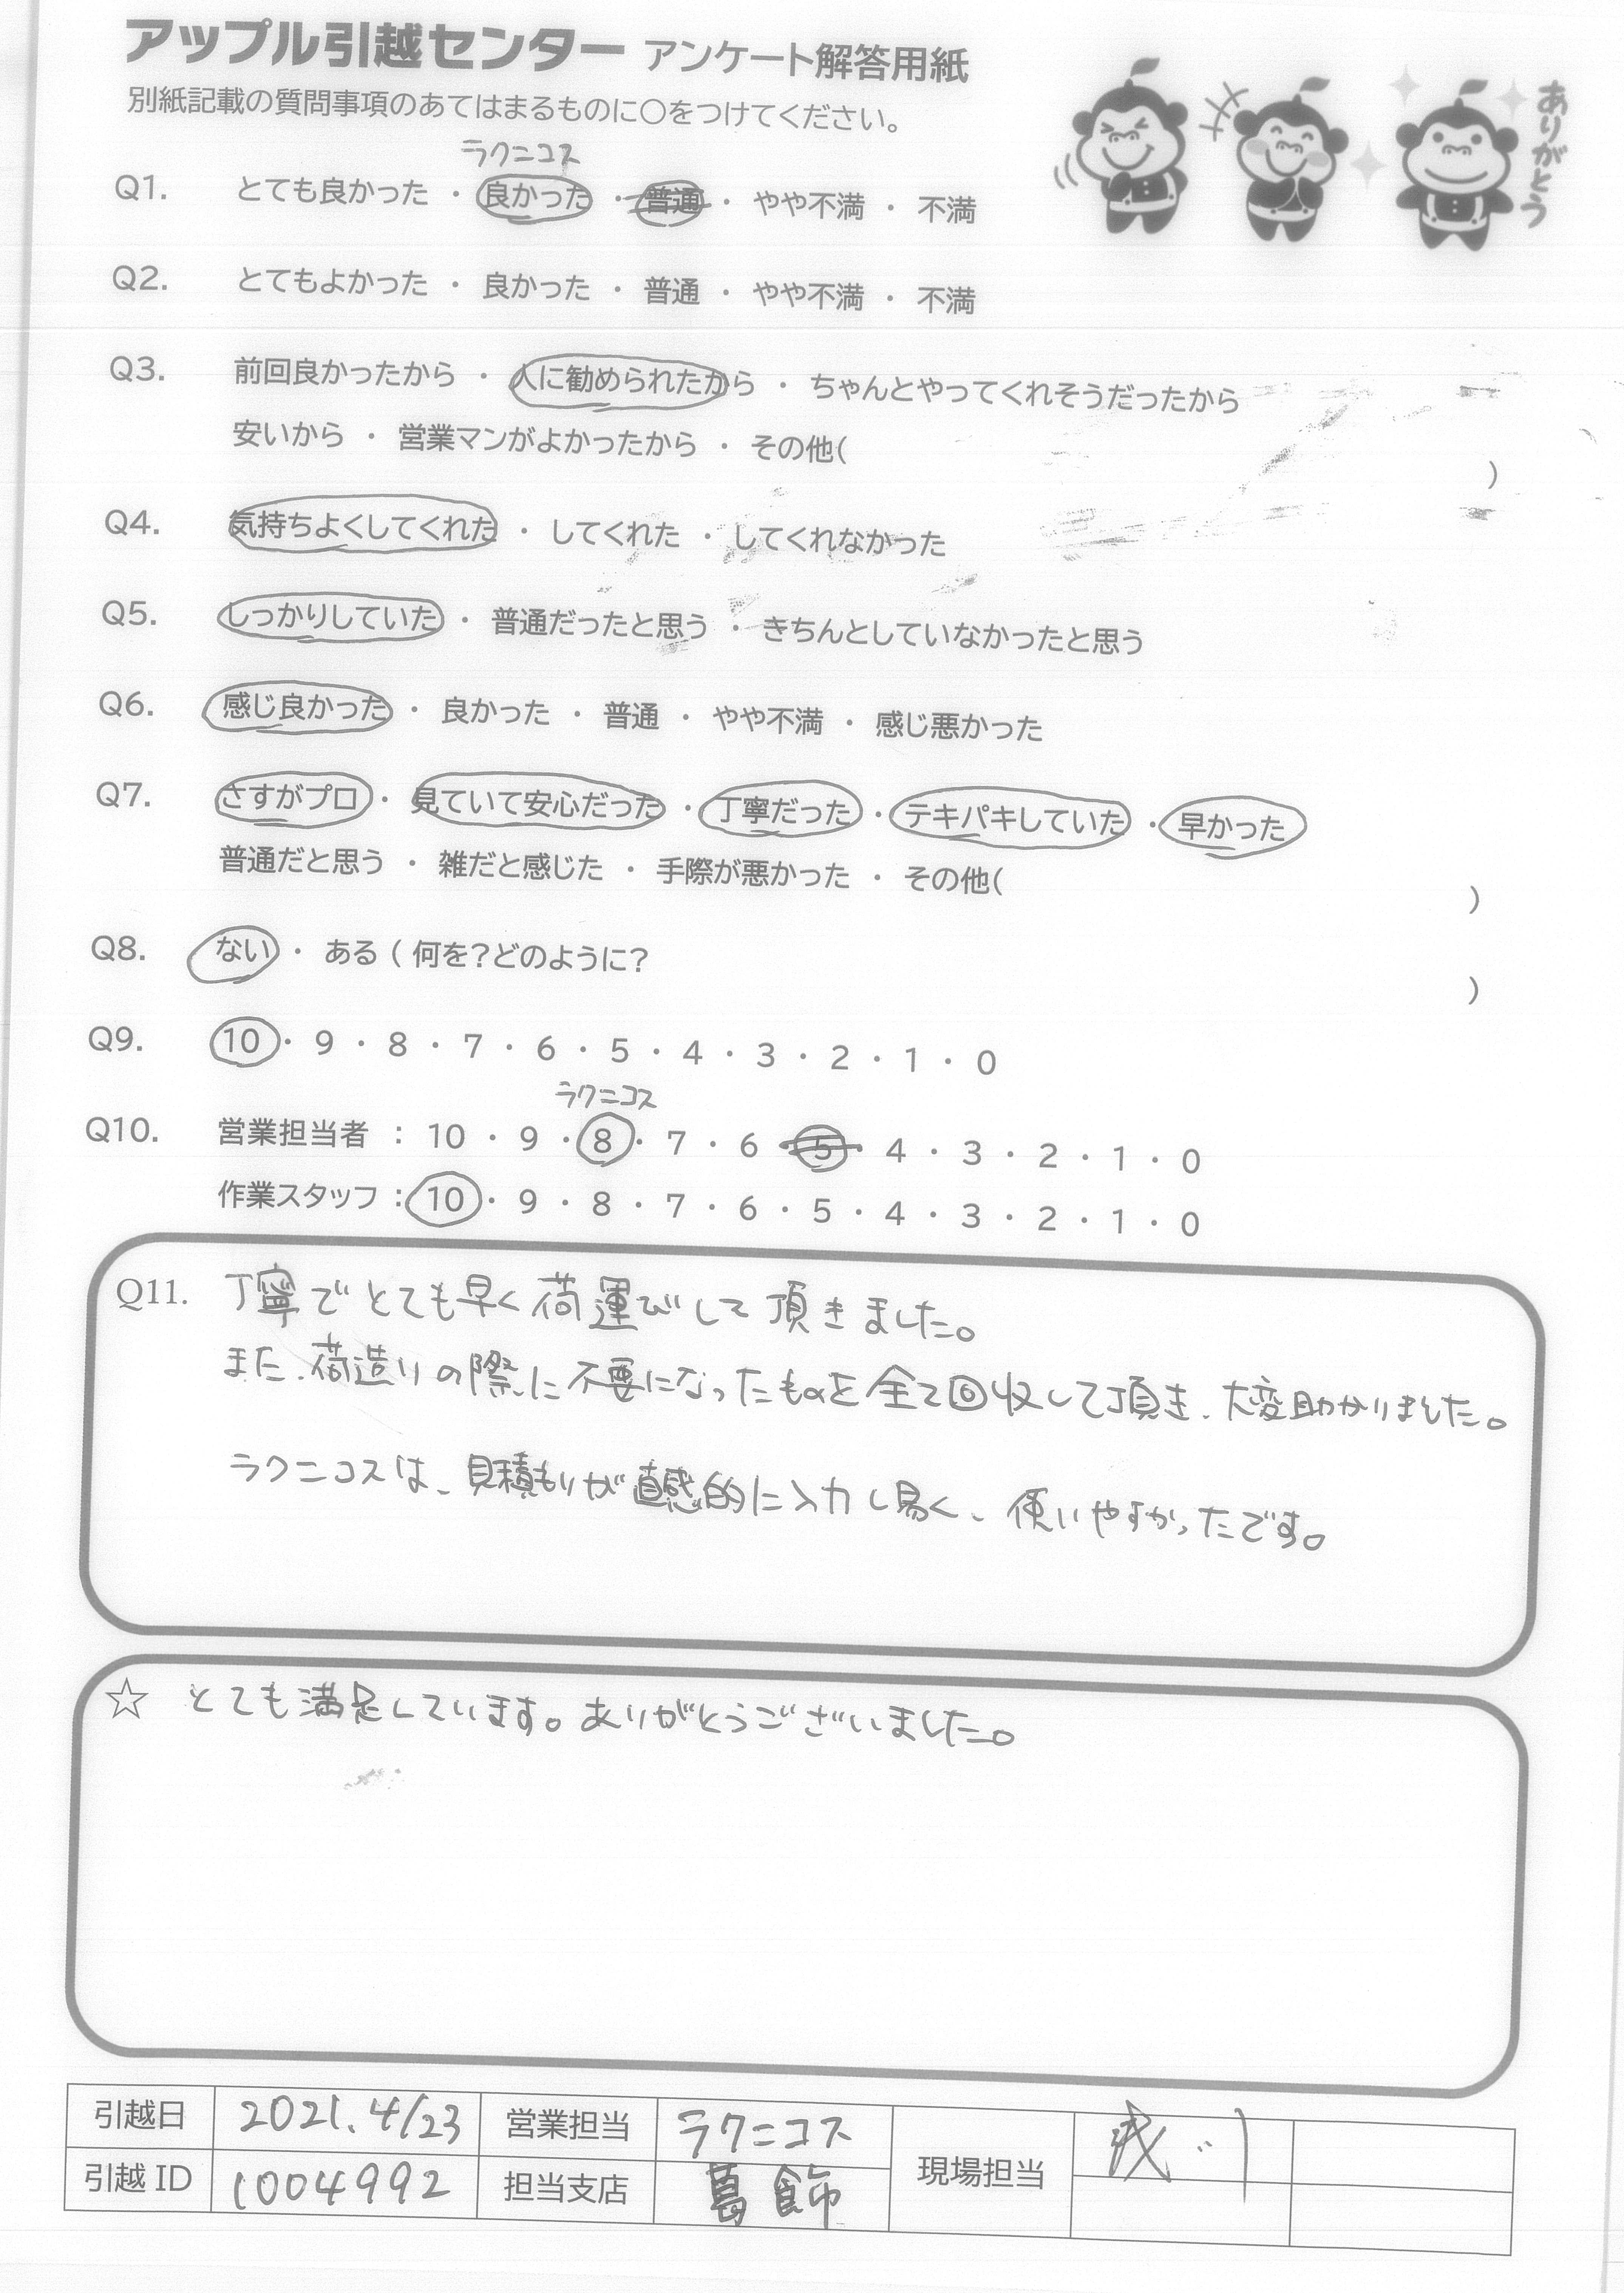 アップル引越センター アンケート解答用紙
別紙記載の質問事項のあてはまるものに○をつけてください。
ありがとう
ラクニコス
Q1. とても良かった ・ 良かった ・ 普通 ・ やや不満 ・ 不満
Q2. とてもよかった ・ 良かった ・ 普通 ・ やや不満 ・ 不満
Q3. 前回良かったから ・ 人に勧められたから ・ ちゃんとやってくれそうだったから
安いから ・ 営業マンがよかったから ・ その他( )
Q4. 気持ちよくしてくれた ・ してくれた ・ してくれなかった
Q5. しっかりしていた ・ 普通だったと思う ・ きちんとしていなかったと思う
Q6. 感じ良かった ・ 良かった ・ 普通 ・ やや不満 ・ 感じ悪かった
Q7. さすがプロ ・ 見ていて安心だった ・ 丁寧だった ・ テキパキしていた ・ 早かった
普通だと思う ・ 雑だと感じた ・ 手際が悪かった ・ その他( )
Q8. ない ・ ある ( 何を?どのように? )
Q9. 10 ・ 9 ・ 8 ・ 7 ・ 6 ・ 5 ・ 4 ・ 3 ・ 2 ・ 1 ・ 0
ラクニコス
Q10. 営業担当者 : 10 ・ 9 ・ 8 ・ 7 ・ 6 ・ 5 ・ 4 ・ 3 ・ 2 ・ 1 ・ 0
作業スタッフ : 10 ・ 9 ・ 8 ・ 7 ・ 6 ・ 5 ・ 4 ・ 3 ・ 2 ・ 1 ・ 0
Q11. 丁寧でとても早く荷運びして頂きました。
また、荷造りの際に不要になったものを全て回収して頂き、大変助かりました。
ラクニコスは、見積もりが直感的に入力し易く、使いやすかったです。
☆ とても満足しています。ありがとうございました。
引越日 2021.4/23 営業担当 ラクニコス 現場担当
引越 ID 1004992 担当支店 葛飾